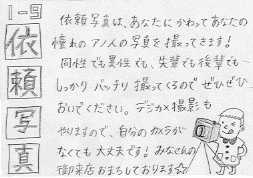 1-9
依頼写真
依頼写真は、あなたにかわってあなたの
憧れのアノ人の写真を撮ってきます!
同性でも異性でも、先輩でも後輩でも…
しっかりバッチリ撮ってくるので ぜひぜひ
おいでください。デジカメ撮影も
やりますので、自分のカメラが
なくても大丈夫です!みなさんの
御来店おまちしております☆